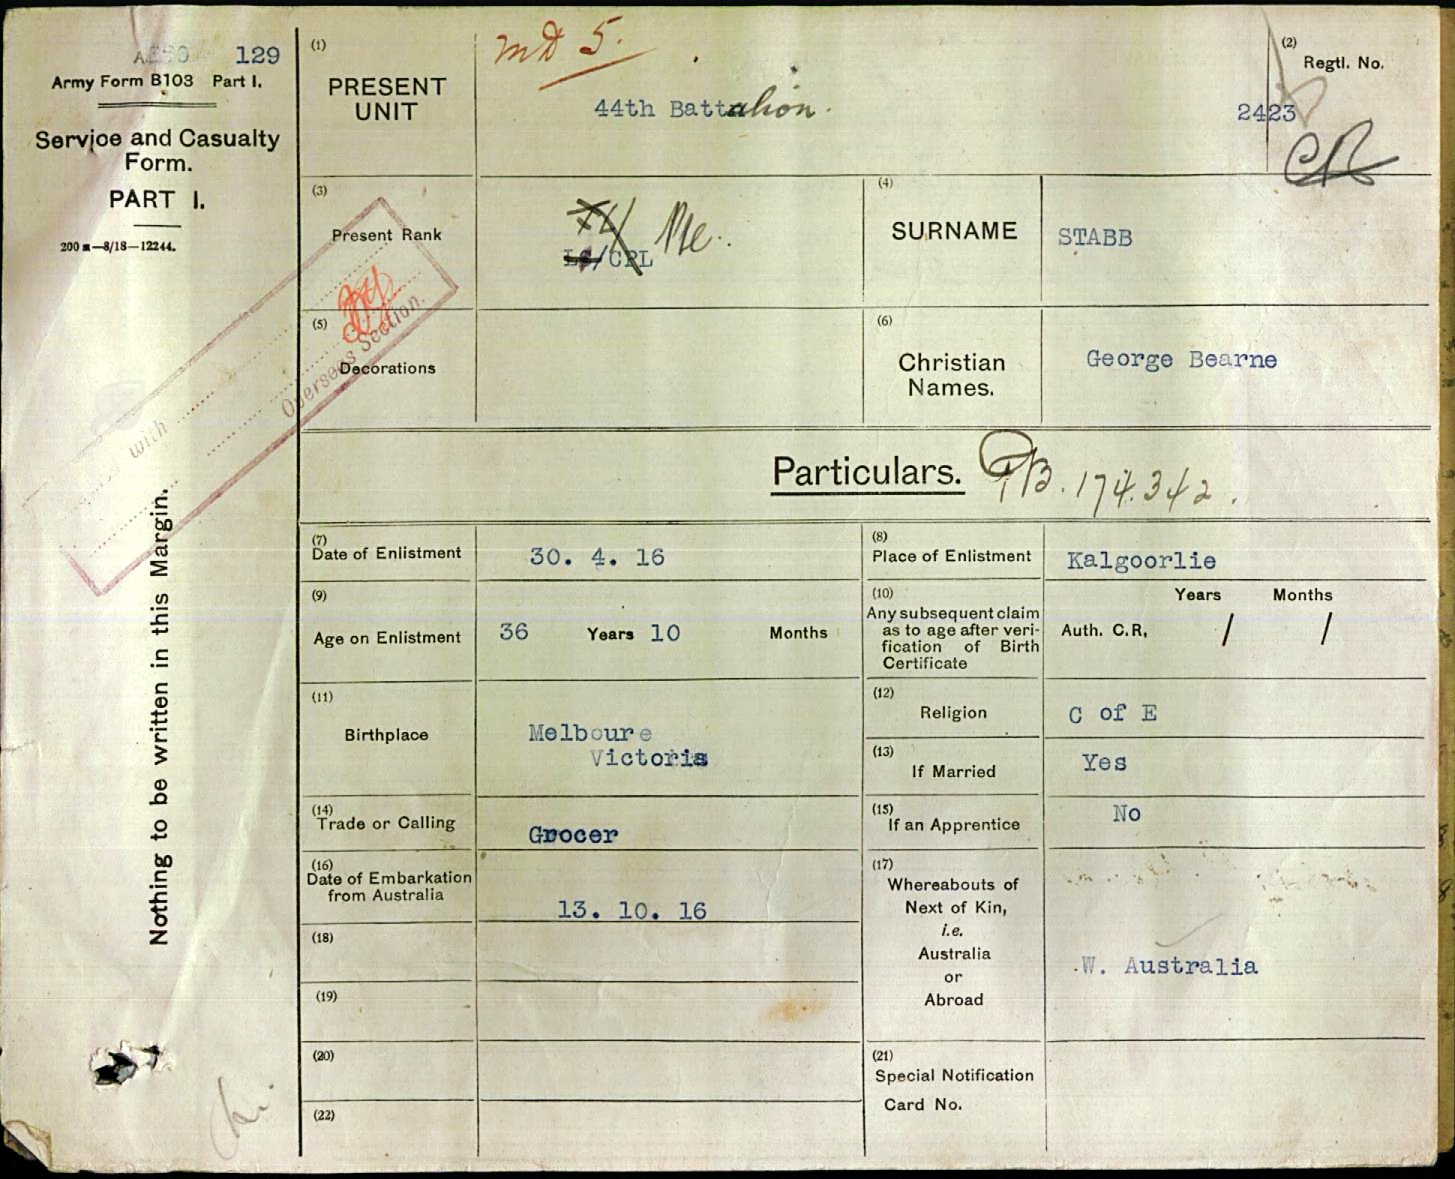 129
Army Form B103 Part I.
Service and Casualty
Form.
PART I.
200 m—8/18—12244.
Nothing to be written in this Margin.
with
Overseas Section.
(1)
PRESENT
UNIT
MD 5.
44th Battalion.
(2)
Regtl. No.
2423
(3)
Present Rank
/CPL Pte.
(4)
SURNAME
STABB
(5)
Decorations
(6)
Christian
Names.
George Bearne
Particulars.
B. 174.342.
(7)
Date of Enlistment
30. 4. 16
(8)
Place of Enlistment
Kalgoorlie
(9)
Age on Enlistment
36 Years 10 Months
(10)
Any subsequent claim
as to age after veri-
fication of Birth
Certificate
Years Months
Auth. C.R, / /
(11)
Birthplace
Melboure
Victoria
(12)
Religion
C of E
(13)
If Married
Yes
(14)
Trade or Calling
Grocer
(15)
If an Apprentice
No
(16)
Date of Embarkation
from Australia
13. 10. 16
(17)
Whereabouts of
Next of Kin,
i.e.
Australia
or
Abroad
W. Australia
(18)
(19)
(20)
(21)
Special Notification
Card No.
(22)